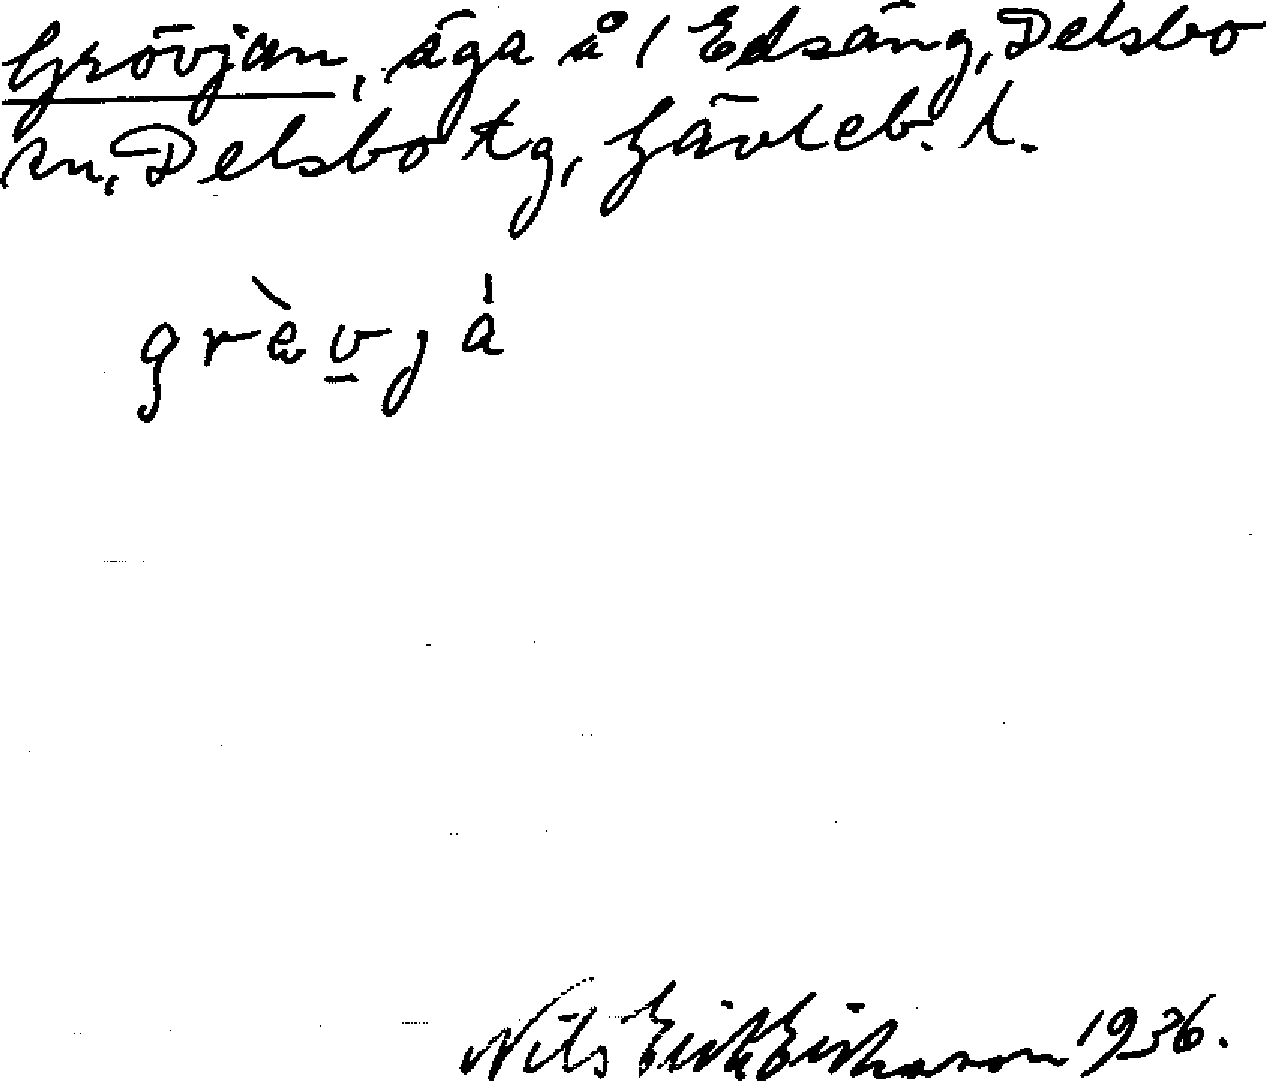 Grövjan, äga å 1 Edsäng, Delsbo
sn, Delsbo tg, Gävleb. l.
grèvjá
Nils Erik Eriksson 1936.